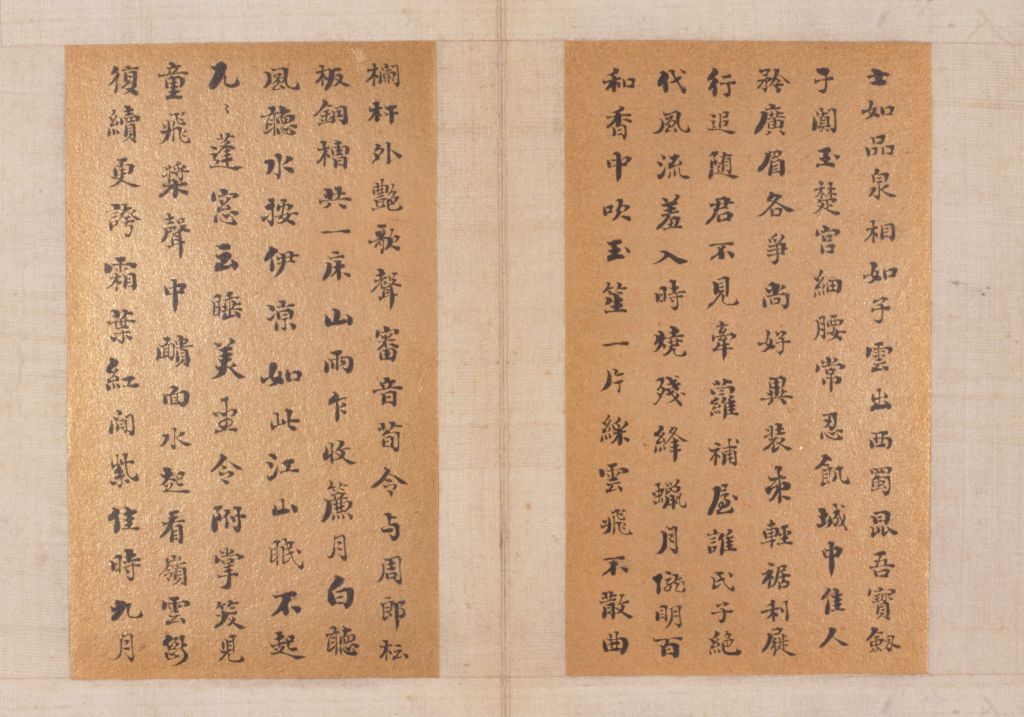 士如品泉相如子雲出西蜀昆吾寶劔
于闐玉楚宮細腰常忍飢城中佳人
矜廣眉各爭尚好異装束輕裾利屣
行追随君不見牽蘿補屋誰氏子絶
代風流羞入時燒殘絳蠟月朧明百
和香中吹玉笙一片綵雲飛不散曲
欄杆外艷歌聲審音荀令与周郎枟
板鋼槽共一床山雨乍收簾月白聽
風聽水按伊凉如此江山眠不起
兀〻蓬窓云睡美坐令附掌笑児
童飛槳聲中面水起看嶺雲断
復續更誇霜葉紅间紫佳時九月